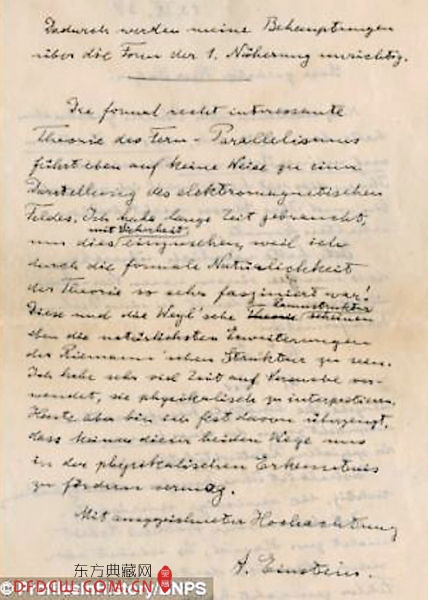 Dadurch werden meine Behauptungen
über die Form der 1. Näherung unrichtig.
Die formal recht interessante
Theorie des Fern-Parallelismus
führt eben auf keine Weise zu einer
Darstellung des elektromagnetischen
Feldes. Ich habe lange Zeit gebraucht,
mit Sicherheit
um dies einzusehen, weil ich
durch die formale Natürlichkeit
der Theorie so sehr fasziniert war!
Raumstruktur
Diese und die Weyl'sche Theorie scheinen
eben die natürlichsten Erweiterungen
der Riemann'schen Struktur zu sein.
Ich habe sehr viel Zeit auf Versuche ver-
wendet, sie physikalisch zu interpretieren.
Heute aber bin ich fest davon überzeugt,
dass keiner dieser beiden Wege uns
in der physikalischen Erkenntnis
zu fördern vermag.
Mit ausgezeichneter Hochachtung
A. Einstein.
东方典藏网
DFDCW.COM.CN
©ProfilesinHistory/CNPS